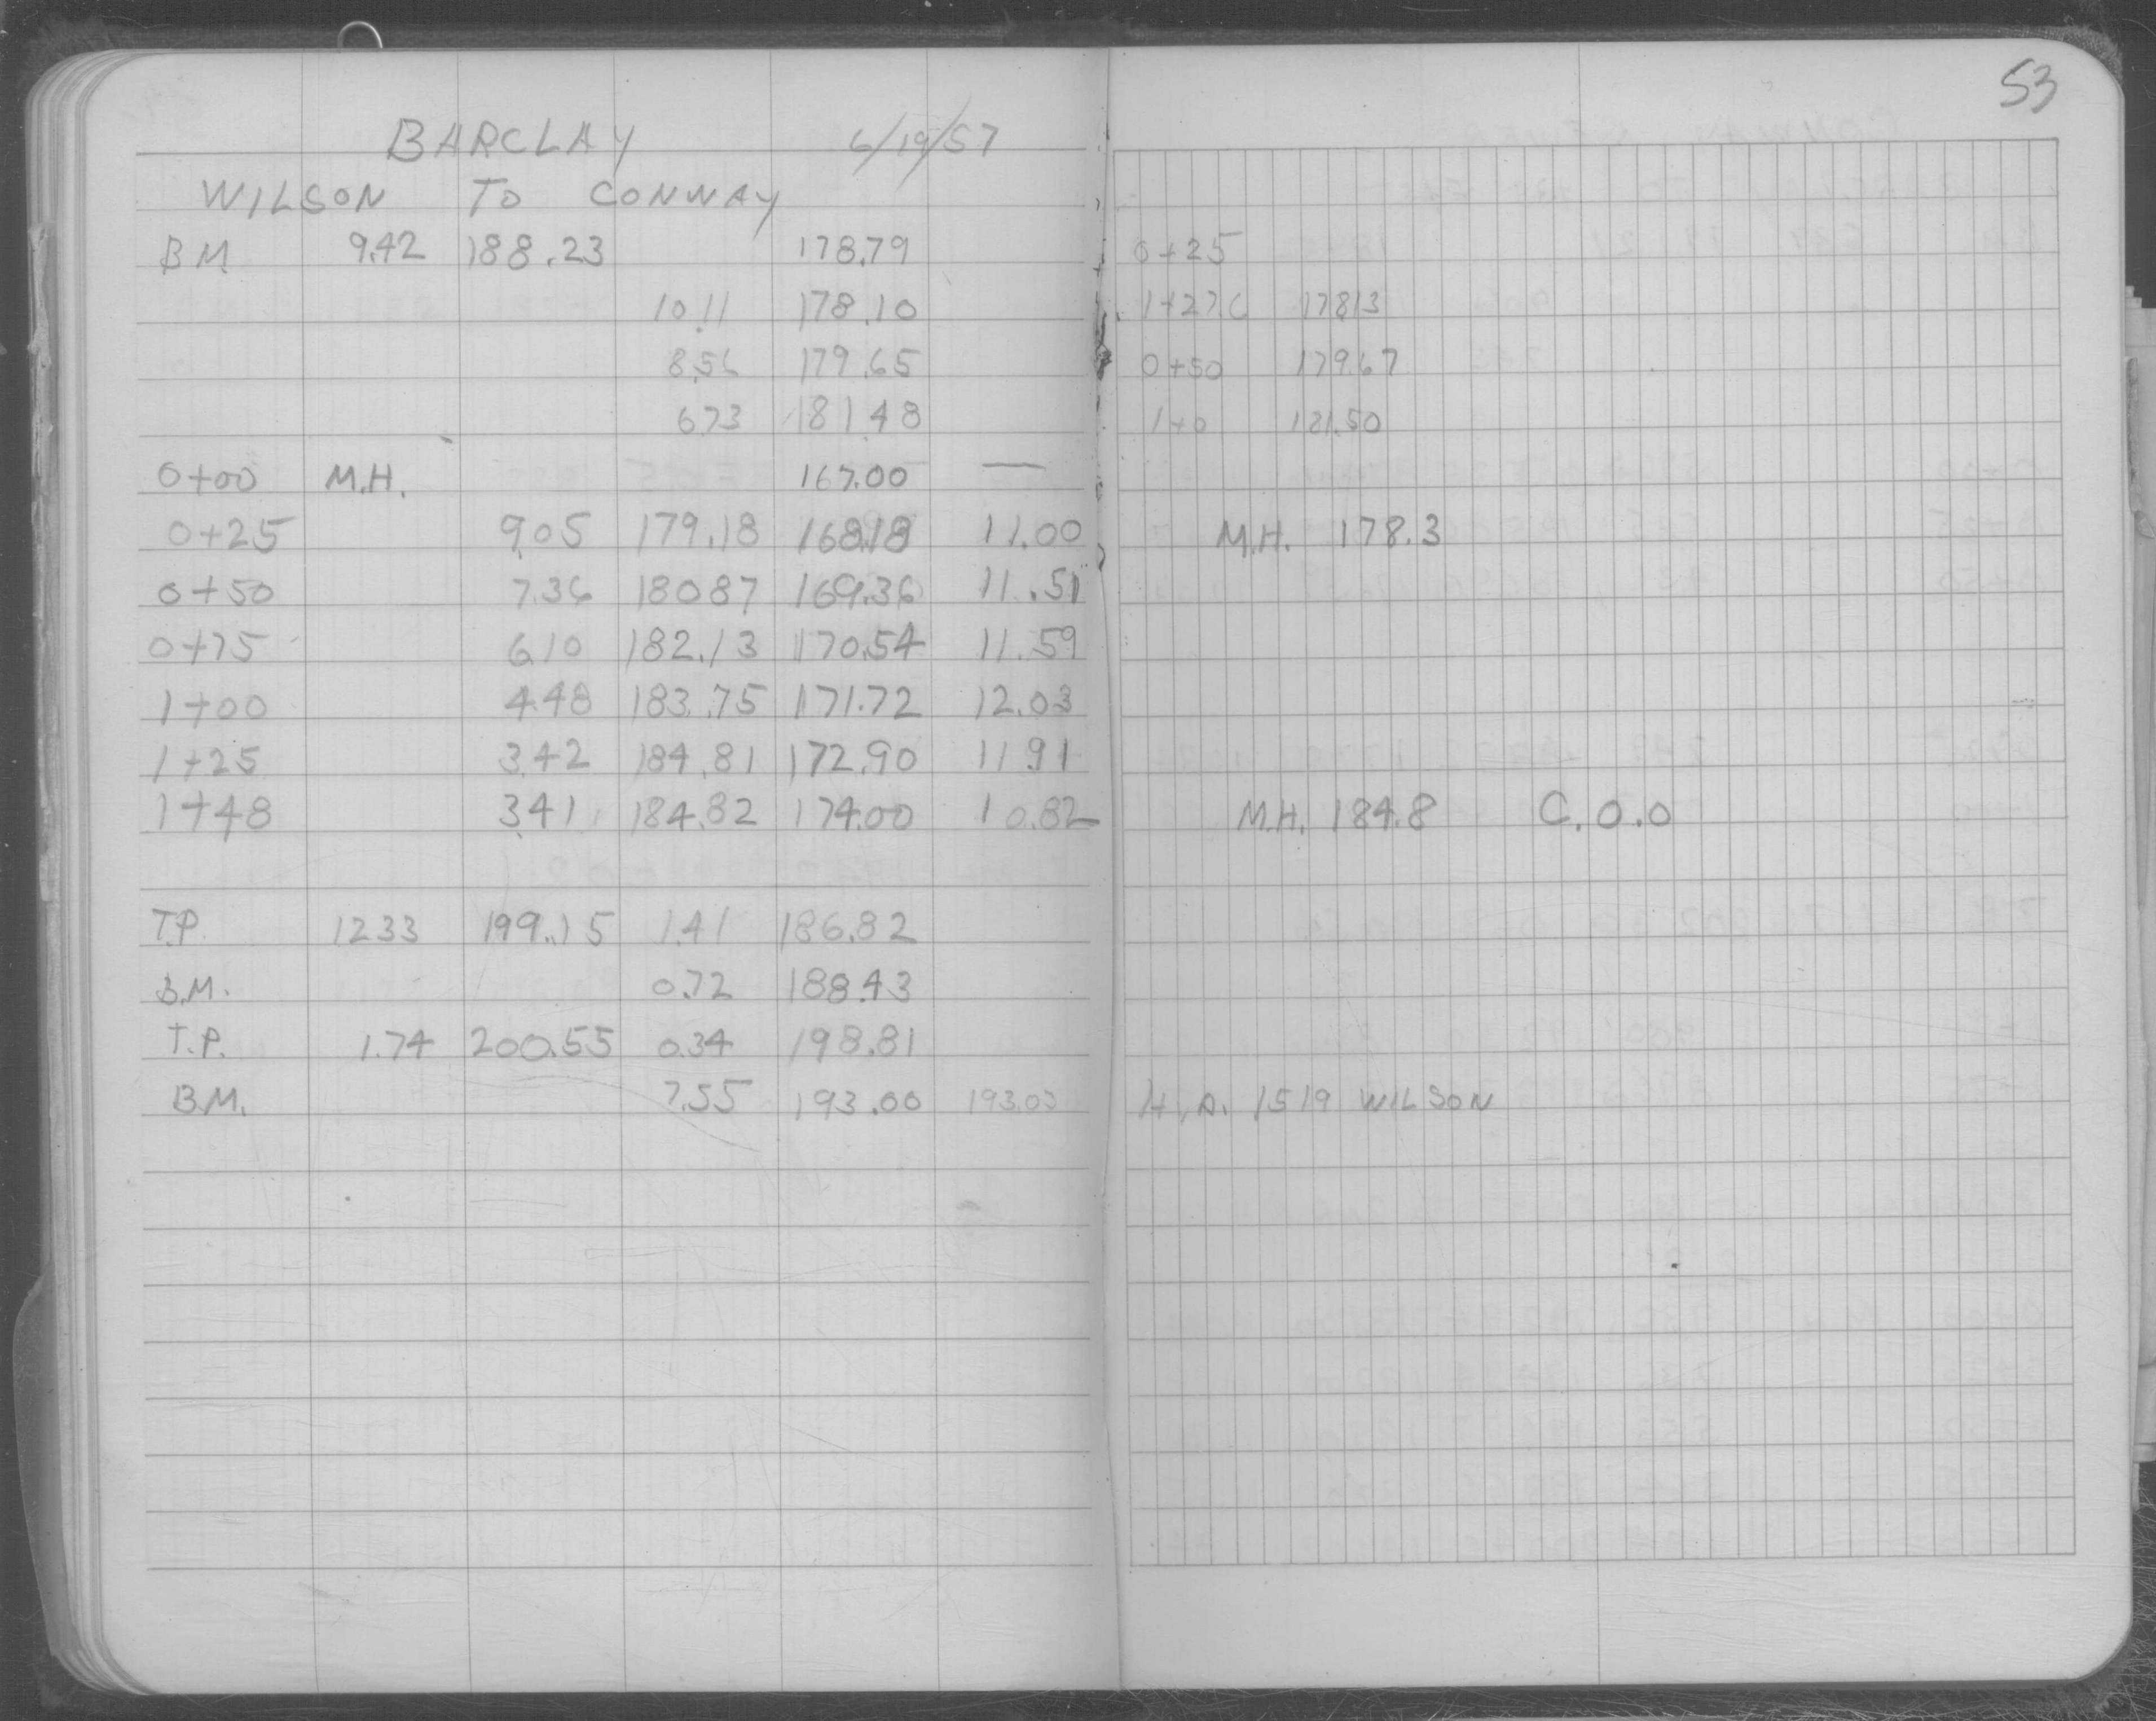 53
BARCLAY 6/19/57
WILSON TO CONWAY
BM 9.42 188.23 178.79 0+25
10.11 178.10 1+27.6 178.13
8.56 179.65 0+50 179.67
6.73 181.48 1+0 181.50
0+00 M.H. 167.00 —
0+25 9.05 179.18 168.18 11.00 M.H. 178.3
0+50 7.36 180.87 169.36 11.51
0+75 6.10 182.13 170.54 11.59
1+00 4.48 183.75 171.72 12.03
1+25 3.42 184.81 172.90 11.91
1+48 3.41 184.82 174.00 10.82 M.H. 184.8 C.O.O
T.P. 12.33 199.15 1.41 186.82
B.M. 0.72 188.43
T.P. 1.74 200.55 0.34 198.81
B.M. 7.55 193.00 193.03 H.A. 1519 WILSON